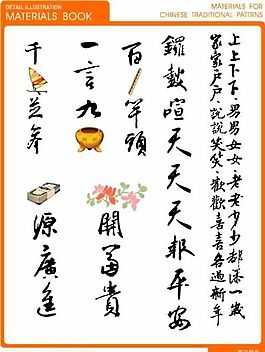 DETAIL ILLUSTRATION
MATERIALS BOOK
MATERIALS FOR
CHINESE TRADITIONAL PATTRNS
上上下下、男男女女、老老少少都添一歲
家家戶戶、說說笑笑、歡歡喜喜各過新年
鑼鼓喧天天天報平安
百竿頭
一言九
千
開富貴
源廣進